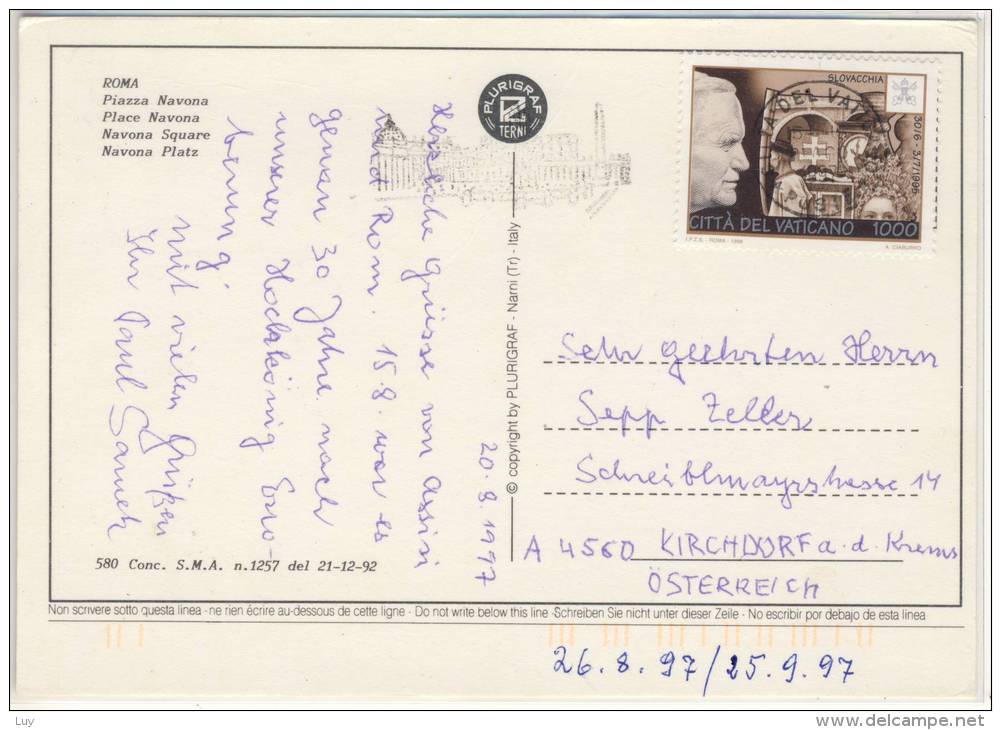 ROMA
Piazza Navona
Place Navona
Navona Square
Navona Platz
PLURIGRAF
TERNI
SLOVACCHIA
30/6 - 3/7/1995
CITTÀ DEL VATICANO 1000
I.P.Z.S. - ROMA - 1996
A. CIABURRO
20.8.1997
Herzliche Grüsse von Assisi
und Rom. 15.8. war es
genau 30 Jahre nach
unserer Hochkönig Ero-
berung
mit vielen Grüßen
Ihr Paul
© copyright by PLURIGRAF - Narni (Tr) - Italy
Sehr geehrten Herrn
Sepp Zeller
Schreiblmayrstrasse 14
A 4560 KIRCHDORF a. d. Krems
ÖSTERREICH
580 Conc. S.M.A. n.1257 del 21-12-92
Non scrivere sotto questa linea - ne rien écrire au-dessous de cette ligne - Do not write below this line - Schreiben Sie nicht unter dieser Zeile - No escribir por debajo de esta linea
26.8.97/25.9.97
Luy
www.delcampe.net